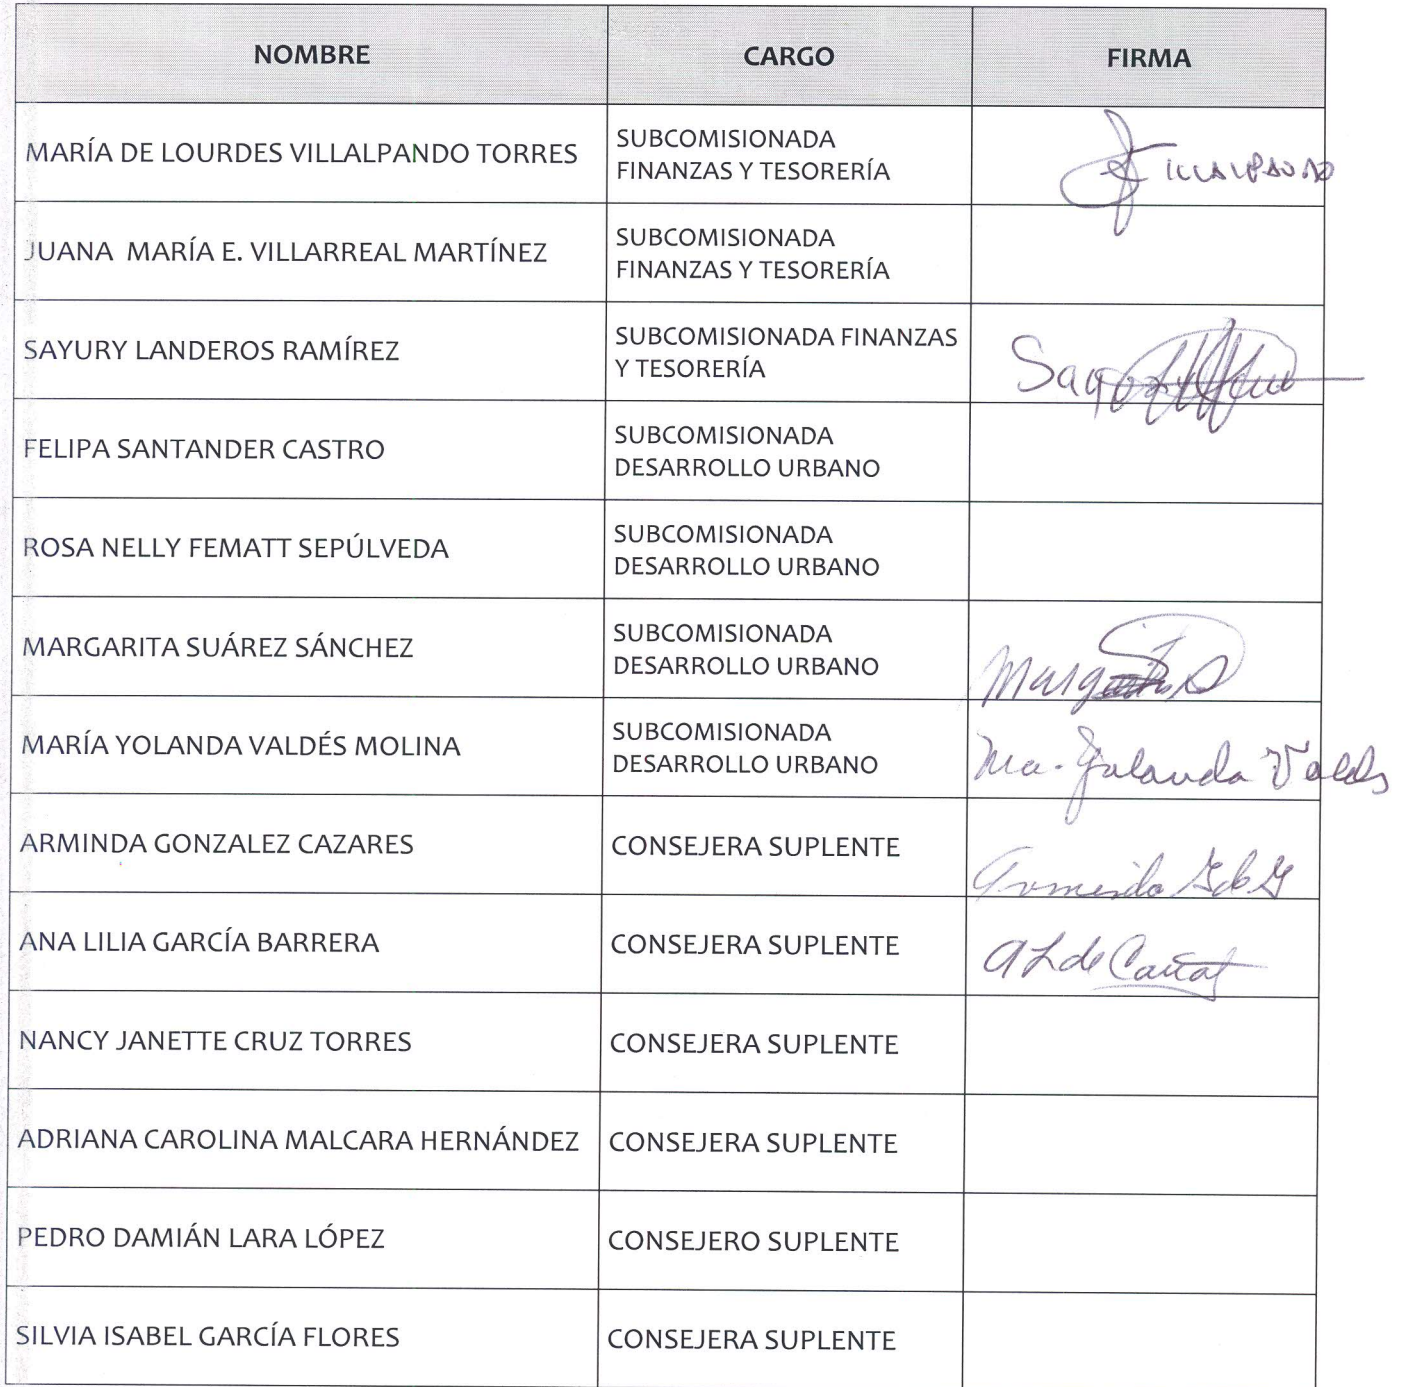 NOMBRE CARGO FIRMA
MARÍA DE LOURDES VILLALPANDO TORRES
SUBCOMISIONADA
FINANZAS Y TESORERÍA
JUANA MARÍA E. VILLARREAL MARTÍNEZ
SUBCOMISIONADA
FINANZAS Y TESORERÍA
SAYURY LANDEROS RAMÍREZ
SUBCOMISIONADA FINANZAS
Y TESORERÍA
FELIPA SANTANDER CASTRO
SUBCOMISIONADA
DESARROLLO URBANO
ROSA NELLY FEMATT SEPÚLVEDA
SUBCOMISIONADA
DESARROLLO URBANO
MARGARITA SUÁREZ SÁNCHEZ
SUBCOMISIONADA
DESARROLLO URBANO
MARÍA YOLANDA VALDÉS MOLINA
SUBCOMISIONADA
DESARROLLO URBANO
Ma. Yolanda Valdés
ARMINDA GONZALEZ CAZARES CONSEJERA SUPLENTE
Arminda
ANA LILIA GARCÍA BARRERA CONSEJERA SUPLENTE
NANCY JANETTE CRUZ TORRES CONSEJERA SUPLENTE
ADRIANA CAROLINA MALCARA HERNÁNDEZ CONSEJERA SUPLENTE
PEDRO DAMIÁN LARA LÓPEZ CONSEJERO SUPLENTE
SILVIA ISABEL GARCÍA FLORES CONSEJERA SUPLENTE